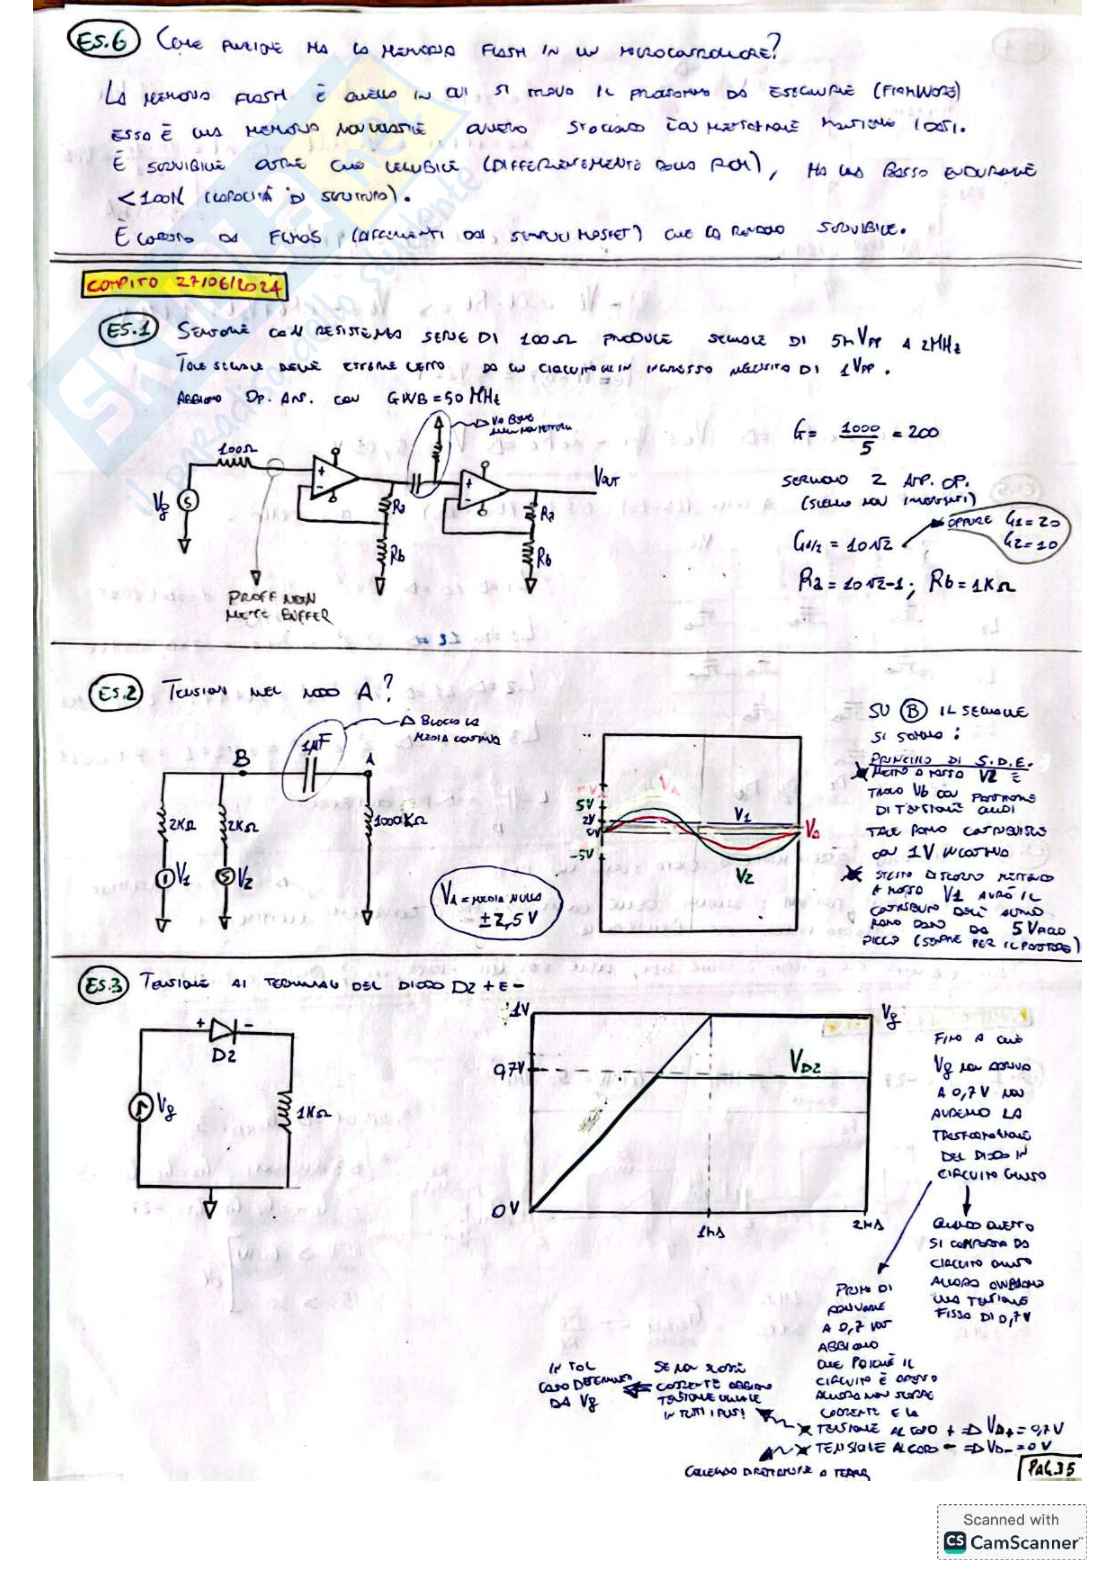 ES.6 COME FUNZIONE HA LA MEMORIA FLASH IN UN MICROCONTROLLORE?
LA MEMORIA FLASH È QUELLA IN CUI SI TROVA IL PROGRAMMA DA ESEGUIRE (FIRMWARE)
ESSA È UNA MEMORIA NON VOLATILE OVVERO I DATI.
È SCRIVIBILE OLTRE CHE LEGGIBILE (DIFFERENTEMENTE DALLA ROM), HA UN BASSO ENDURANCE
<100K (CAPACITÀ DI SCRITTURA).
È DA FGMOS (DIFFERENTI DAI SEMPLICI MOSFET) CHE LA RENDONO SCRIVIBILE.
COMPITO 27/06/2024
ES.1 SENSORE CON RESISTENZA SERIE DI 100Ω PRODUCE SEGNALE DI 5mVPP A 2MHz
TALE SEGNALE DEVE ESSERE LETTO DA UN CIRCUITO CHE IN INGRESSO NECESSITA DI 1VPP.
ABBIAMO OP. AMP. CON GWB=50 MHz
100Ω
Vg
S
+
-
+
-
Ra
Rb
Ra
Rb
VOUT
PROFF NON
METTE BUFFER
G= 1000/5 = 200
SERVONO 2 AMP. OP.
(SIAMO NON INVERTENTI)
G1/2 = 10√2
OPPURE G1=20
G2=10
Ra = 10√2-1; Rb = 1KΩ
ES.2 TENSIONI NEL NODO A?
BLOCCA LA
MEDIA CONTINUA
1µF
B
A
2KΩ
2KΩ
1000KΩ
V1
S
V2
VA = MEDIA NULLA
±2,5V
5V
2V
0V
-5V
V1
VA
V2
SU B IL SEGNALE
SI SOMMA:
PRINCIPIO DI S.D.E.
METTO A MASSA V2 E
TROVO Vb CON PARTITORE
DI TENSIONE QUINDI
TALE RAMO CONTRIBUISCE
CON 1V IN CONTINUA
STESSO DISCORSO METTENDO
A MASSA V1 AVRÒ IL
CONTRIBUTO DELL'ALTRO
RAMO DATO DA 5V PICCO
PICCO (SEMPRE PER IL PARTITORE)
ES.3 TENSIONE AI TERMINALI DEL DIODO D2 + E -
+ -
D2
Vg
1KΩ
1V
0,7V
0V
Vg
VD2
1ms
2ms
FINO A CHE
Vg NON ARRIVA
A 0,7V NON
AVREMO LA
TRASFORMAZIONE
DEL DIODO IN
CIRCUITO CHIUSO
QUANDO
SI COMPORTA DA
CIRCUITO CHIUSO
ALLORA ABBIAMO
UNA TENSIONE
FISSA DI 0,7V
PRIMA DI
ARRIVARE
A 0,7 VOLT
ABBIAMO
CHE POICHÉ IL
CIRCUITO È APERTO
ALLORA NON SCORRE
CORRENTE E LA
TENSIONE AL CAPO + => VD+ = 0,7V
TENSIONE AL CAPO - => VD- = 0V
SE NON SCORRE
CORRENTE ABBIAMO
TENSIONE UGUALE
IN TUTTI I PUNTI
IN TAL
CASO DETERMINATA
DA Vg
COLLEGATO DIRETTAMENTE A TERRA
PAG.35
Scanned with
CS CamScanner